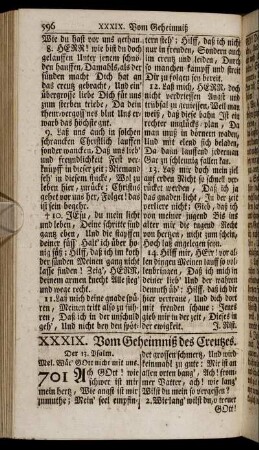 596 XXXIX. Vom Geheimniß
Wie du hast vor uns gethan
8. HERR! wie bist du doch
gelauffen Unter jenem schnö-
den hauffen, Damahls als der
sünden macht Dich hat an
das creutz gebracht, Und ein'
übergrosse liebe Dich für uns
zum sterben triebe, Da dein
theur-vergoss'nes blut Uns er-
warb das höchste gut.
9. Laß uns auch in solchen
schrancken Christlich lauffen
sonder wancken, Daß uns lieb
und freundlichkeit Fest ver-
knüpff in dieser zeit: Niemand
seh' in diesem stücke, Wol zu
leben hier, zurücke; Christus
gehet vor uns her, Folget! das
ist sein begehr.
10. JEsu, du mein licht
und leben, Deine schritte sind
gantz eben, Und die stapffen
deiner füß Halt' ich über ho-
nig süß; Hilff, daß ich im koth
der sünden Meinen gang nicht
lasse finden! Zeig', HERR,
deinem armen knecht Alle steig'
und wege recht.
11. Laß mich deine gnade spü-
ren, Meinen tritt also zu füh-
ren, Daß ich in der unschuld
geh', Und nicht bey den spöt-
tern steh'; Hilff, daß ich nicht
nur in freuden, Sondern auch
im creutz und leiden, Durch
so manchen kampff und streit
Dir zu folgen sey bereit.
12. Laß mich, HERR, doch
nicht verdriessen Angst und
trübsal zu geniessen, Weil man
weiß, daß diese bahn Ist ein
rechter unglücks-plan, Da
man muß in dörnern waden,
Und mit elend seyn beladen,
Da beym lauffend jederman
Gar zu schleunig fallen kan.
13. Laß mir doch mein ziel
auf erden Nicht so schnell ver-
rücket werden, Daß ich ja das
gnaden-licht, In der zeit ver-
liere nicht: Gieb, daß ich in
meiner jugend Mög' auch im
alter mit die tugend Recht
von hertzen, nicht zum schein,
Hoch laß angelegen seyn.
14. Hilff mir, HErr! vor al-
len dingen Meinen lauff so voll-
enbringen, Daß ich mich in
deiner lieb' Und der wahren
demuth üb': Hilff, daß ich dir
hier vertraue, Und dich dort
mit freuden schaue; Jenes
gieb mir in der zeit, Dieses in
der ewigkeit. J. Rist.
XXXIX. Vom Geheimniß des Creutzes.
Der 13. Psalm.
Mel. Wär' GOtt nicht mit uns.
701 Ach GOtt! wie
schwer ist mir
mein hertz, Wie angst ist mir
zumuthe; Mein' seel empfin-
det grossen schmertz, Und wird
keinmahl zu gute; Mir ist an
allen orten bang', Ach! from-
mer Vatter, ach! wie lang'
Wilst du mein so vergessen?
2. Wie lang' wilst du, o treuer
GOtt!